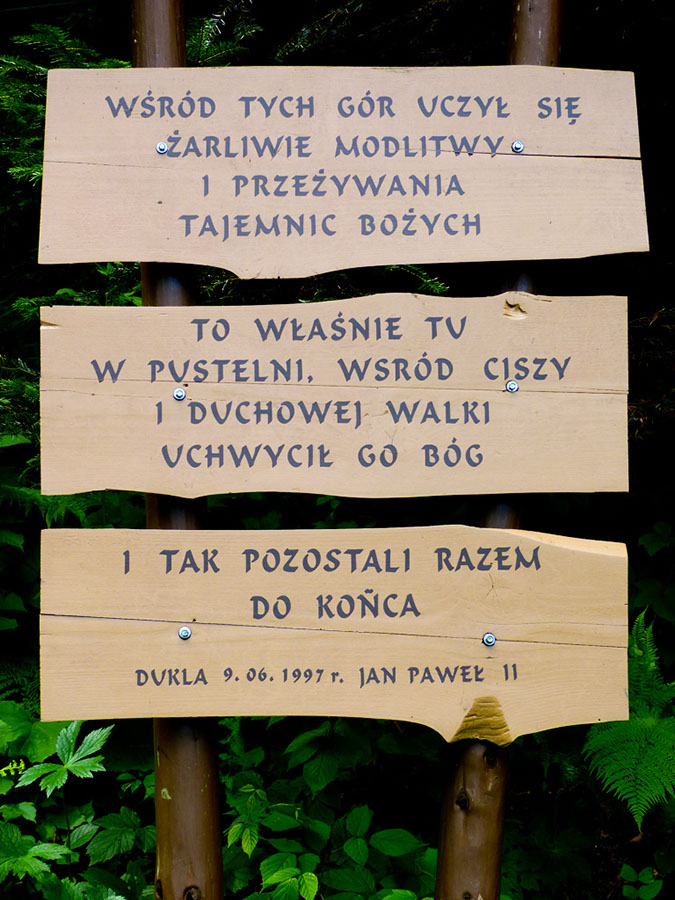 WŚRÓD TYCH GÓR UCZYŁ SIĘ
ŻARLIWIE MODLITWY
I PRZEŻYWANIA
TAJEMNIC BOŻYCH
TO WŁAŚNIE TU
W PUSTELNI, WSRÓD CISZY
I DUCHOWEJ WALKI
UCHWYCIŁ GO BÓG
I TAK POZOSTALI RAZEM
DO KOÑCA
DUKLA 9.06.1997 r. JAN PAWEŁ II